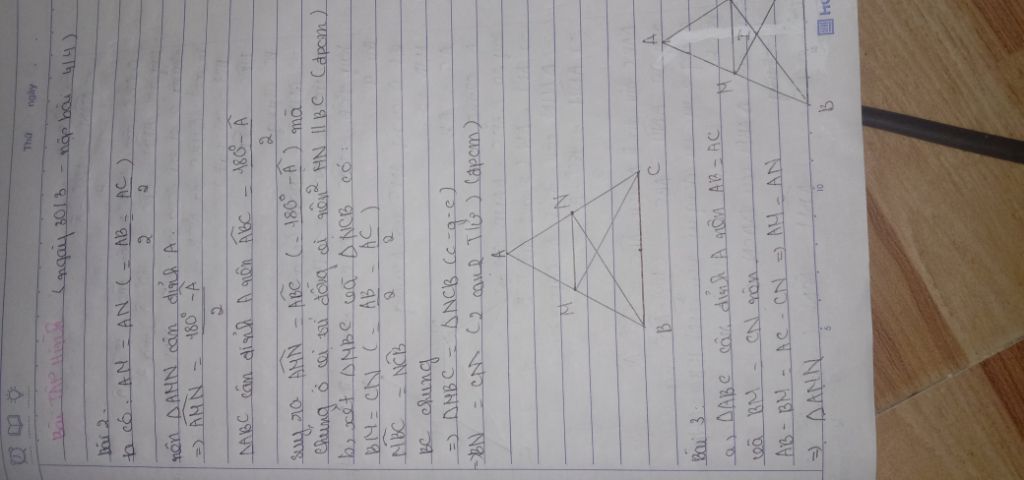 Thứ ngày
Bài Tập Hình (ngày 30/3 - nộp bài 4/4)
Bài 2.
ta có: AM = AN (= AB/2 = AC/2)
nên ΔAMN cân đỉnh A.
=> AMN = 180° - A / 2
ΔABC cân đỉnh A nên ABC = 180° - A / 2
suy ra AMN = ABC (= 180° - A / 2) mà
chúng ở vị trí đồng vị nên MN // BC (đpcm)
b, xét ΔMBC và ΔNCB có:
BM = CN (= AB/2 = AC/2)
MBC = NCB
BC chung
=> ΔMBC = ΔNCB (c-g-c)
=> BN = CM (2 cạnh T|ứ) (đpcm)
A
M N
B C
Bài 3.
a, ΔABC cân đỉnh A nên AB = AC
và BM = CN nên
AB - BM = AC - CN => AM = AN
=> ΔAMN
A
M
I
B